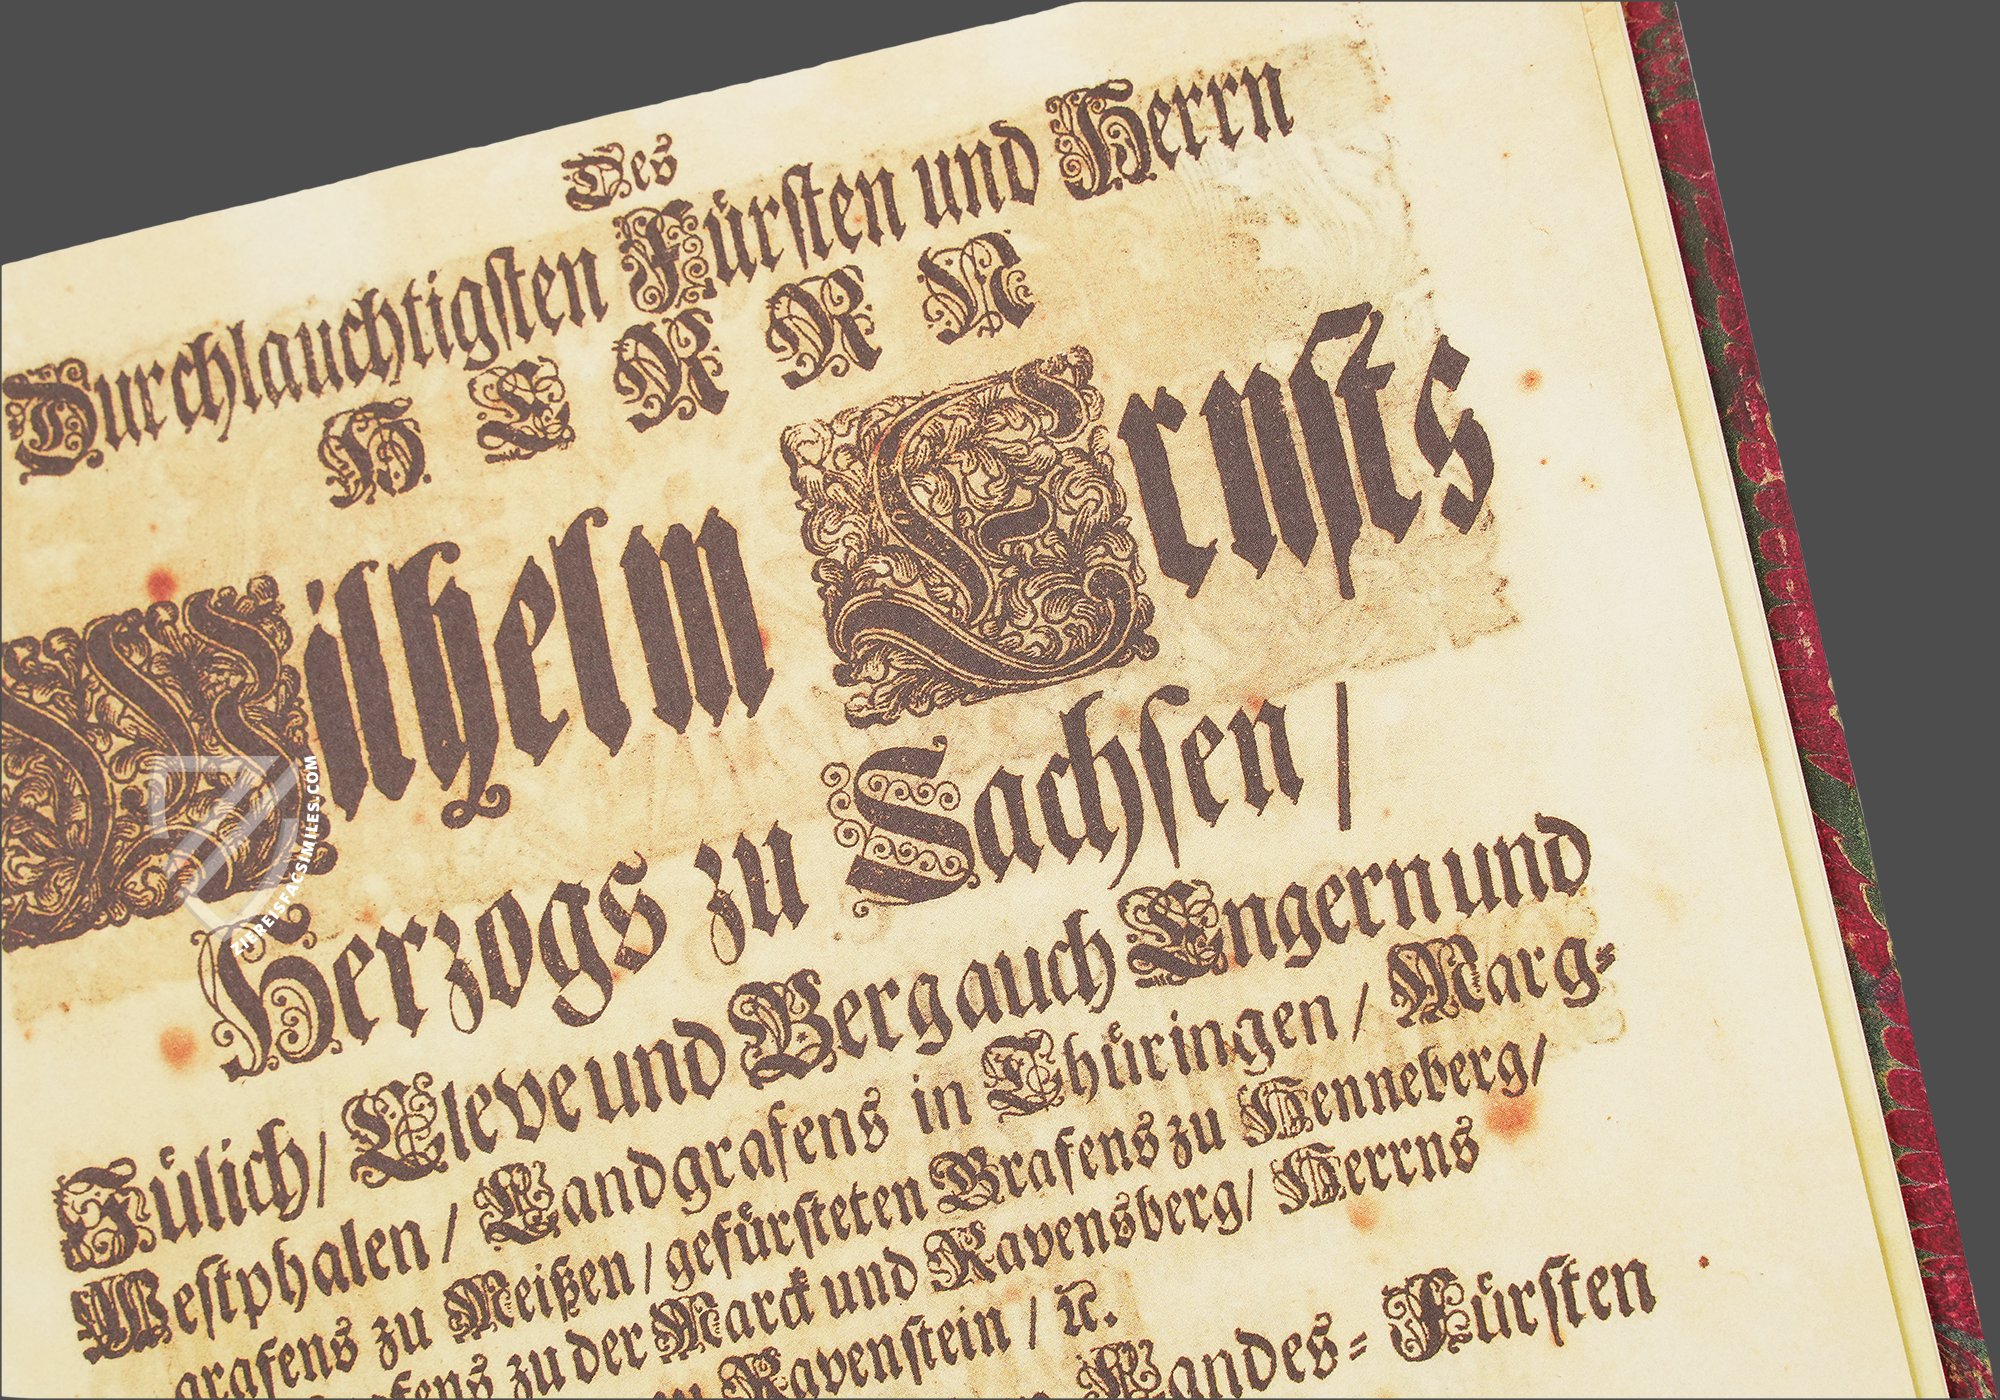 Des
Durchlauchtigsten Fürsten und Herrn
HERRN
Wilhelm Ernsts
Herzogs zu Sachsen /
Jülich / Cleve und Berg auch Engern und
Westphalen / Landgrafens in Thüringen / Marg=
grafens zu Meißen / gefürsteten Grafens zu Henneberg /
zu der Marck und Ravensberg / Herrns
Ravenstein / ꝛc.
Landes=Fürsten
ZIEREISFACSIMILES.COM